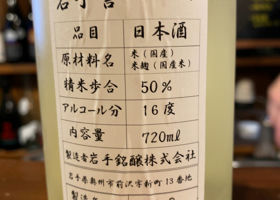 品目 日本酒
原材料名 米(国産) 米麹(国産米)
精米歩合 50%
アルコール分 16度
内容量 720ml
製造者岩手銘醸株式会社
岩手県奥州市前沢字新町13番地